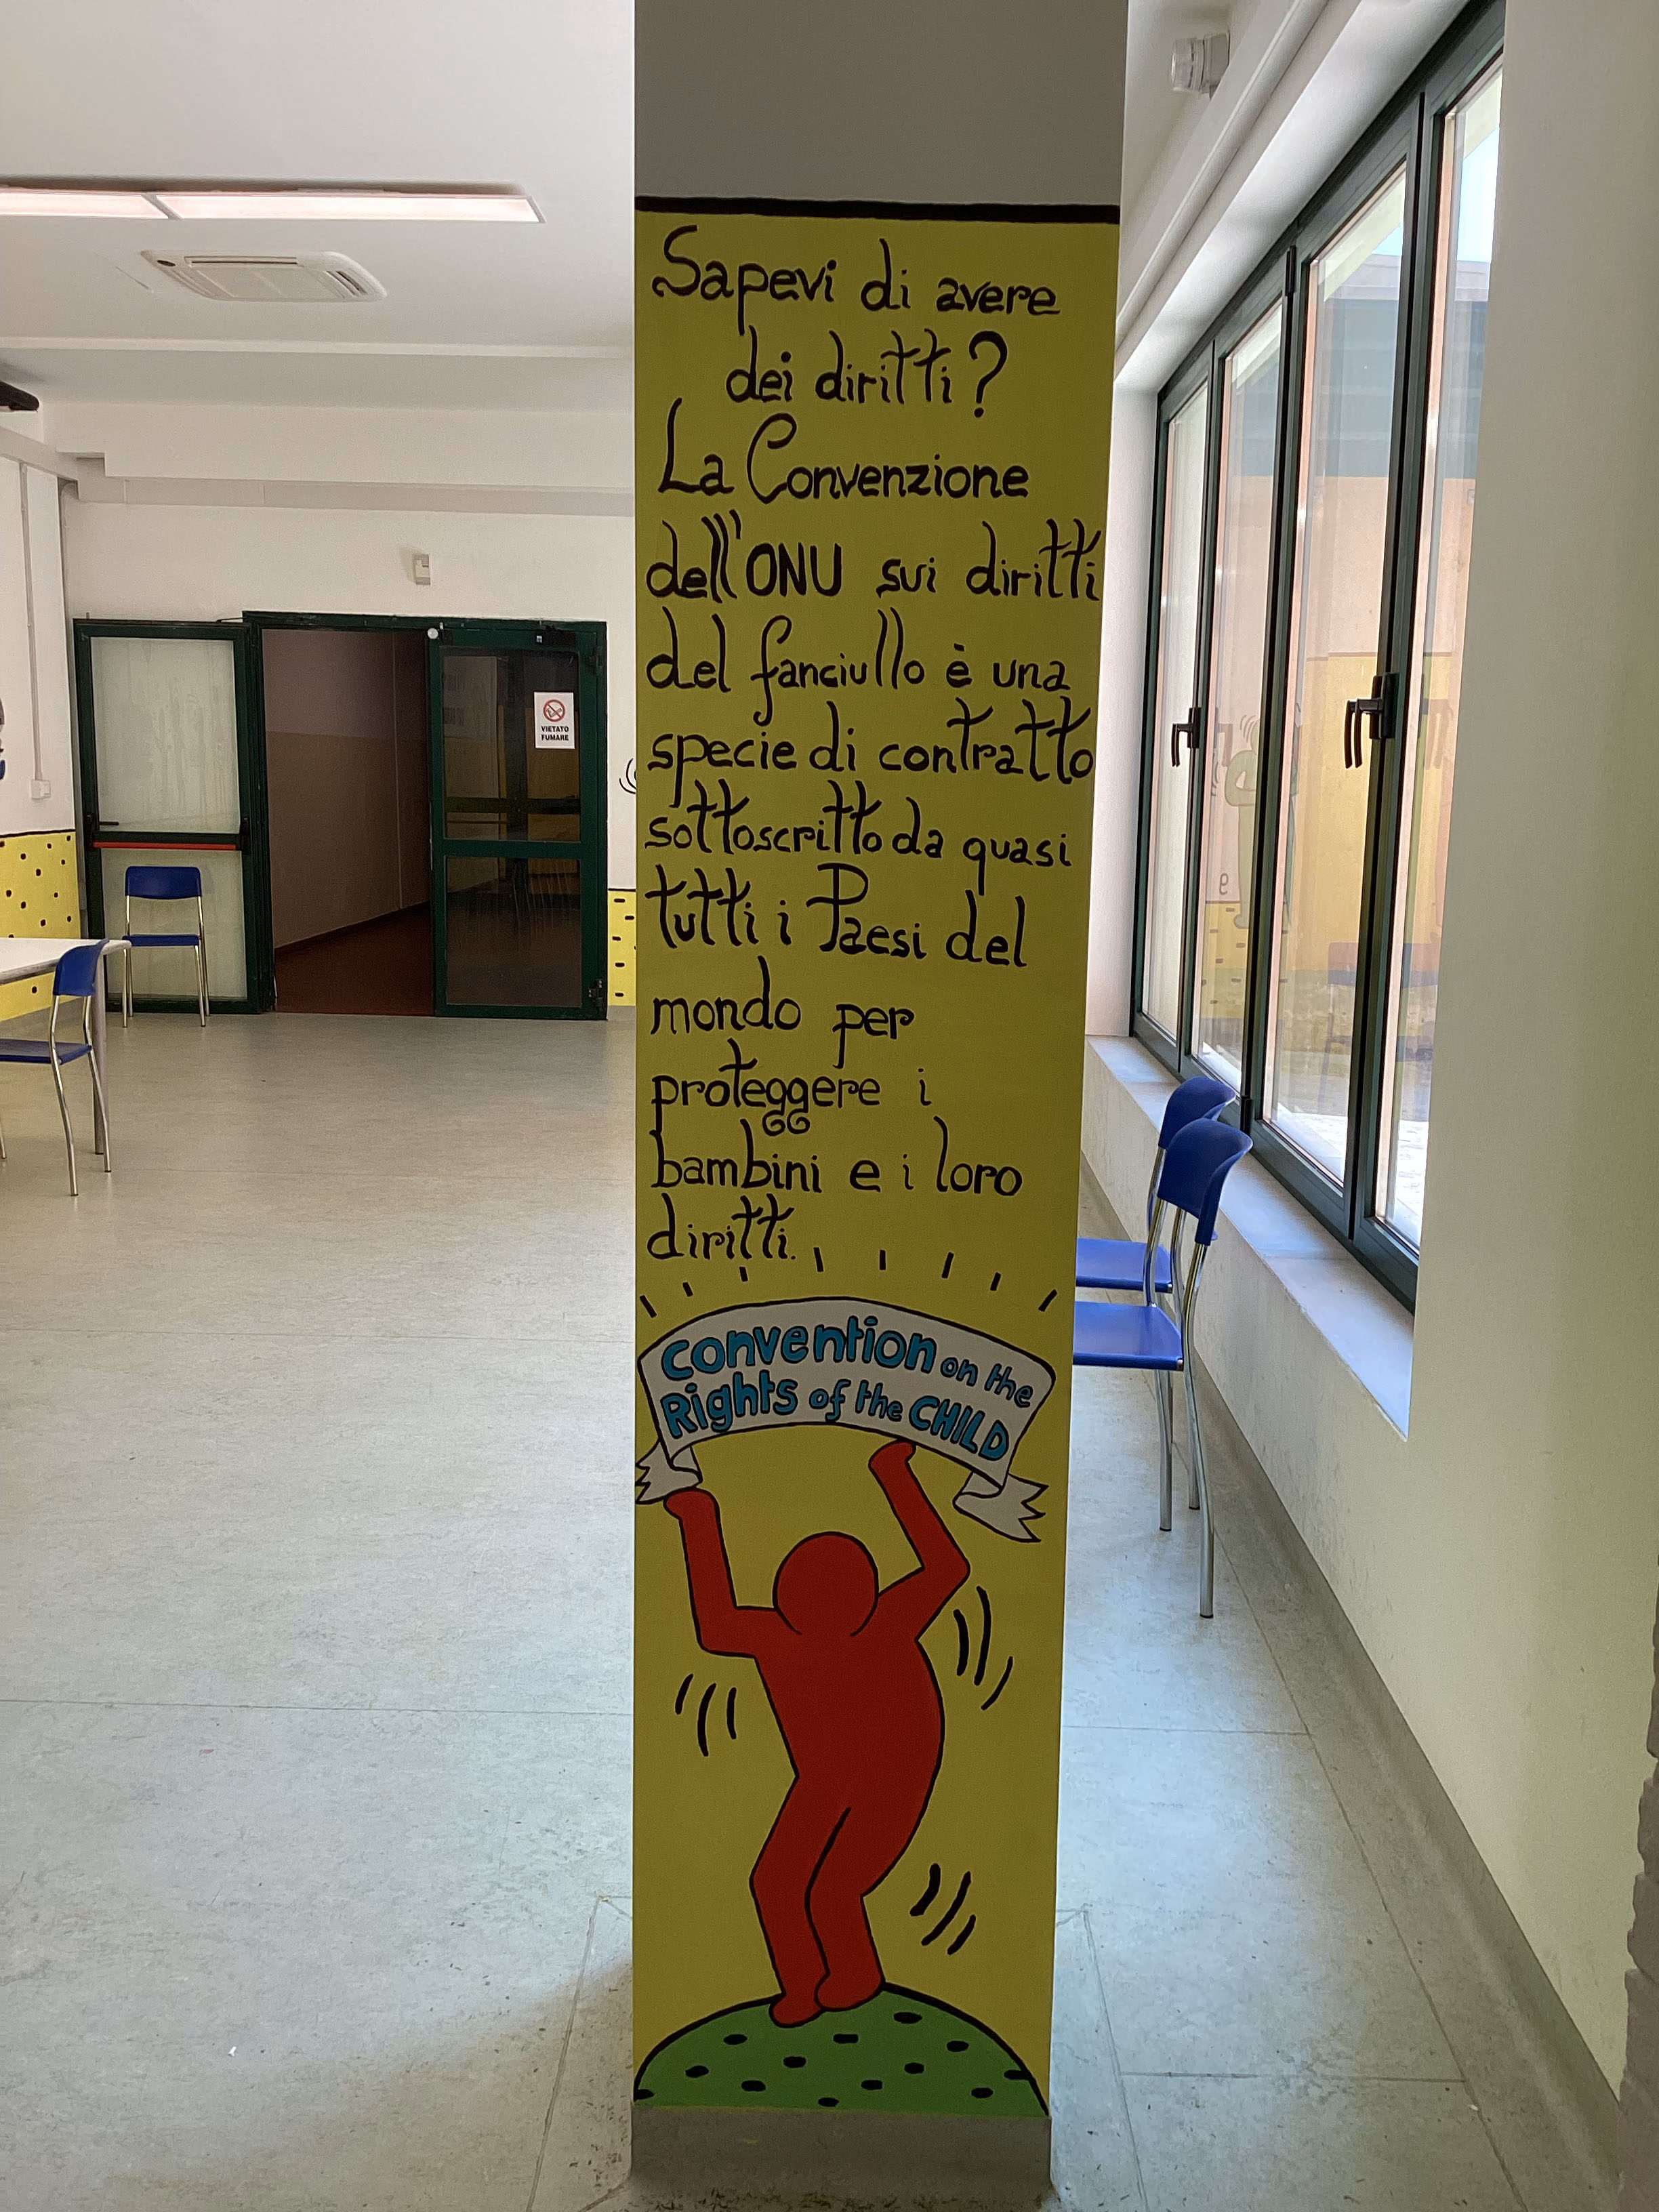 Sapevi di avere
dei diritti?
La Convenzione
dell'ONU sui diritti
del fanciullo è una
specie di contratto
sottoscritto da quasi
tutti i Paesi del
mondo per
proteggere i
bambini e i loro
diritti.
convention on the
Rights of the CHILD
VIETATO
FUMARE